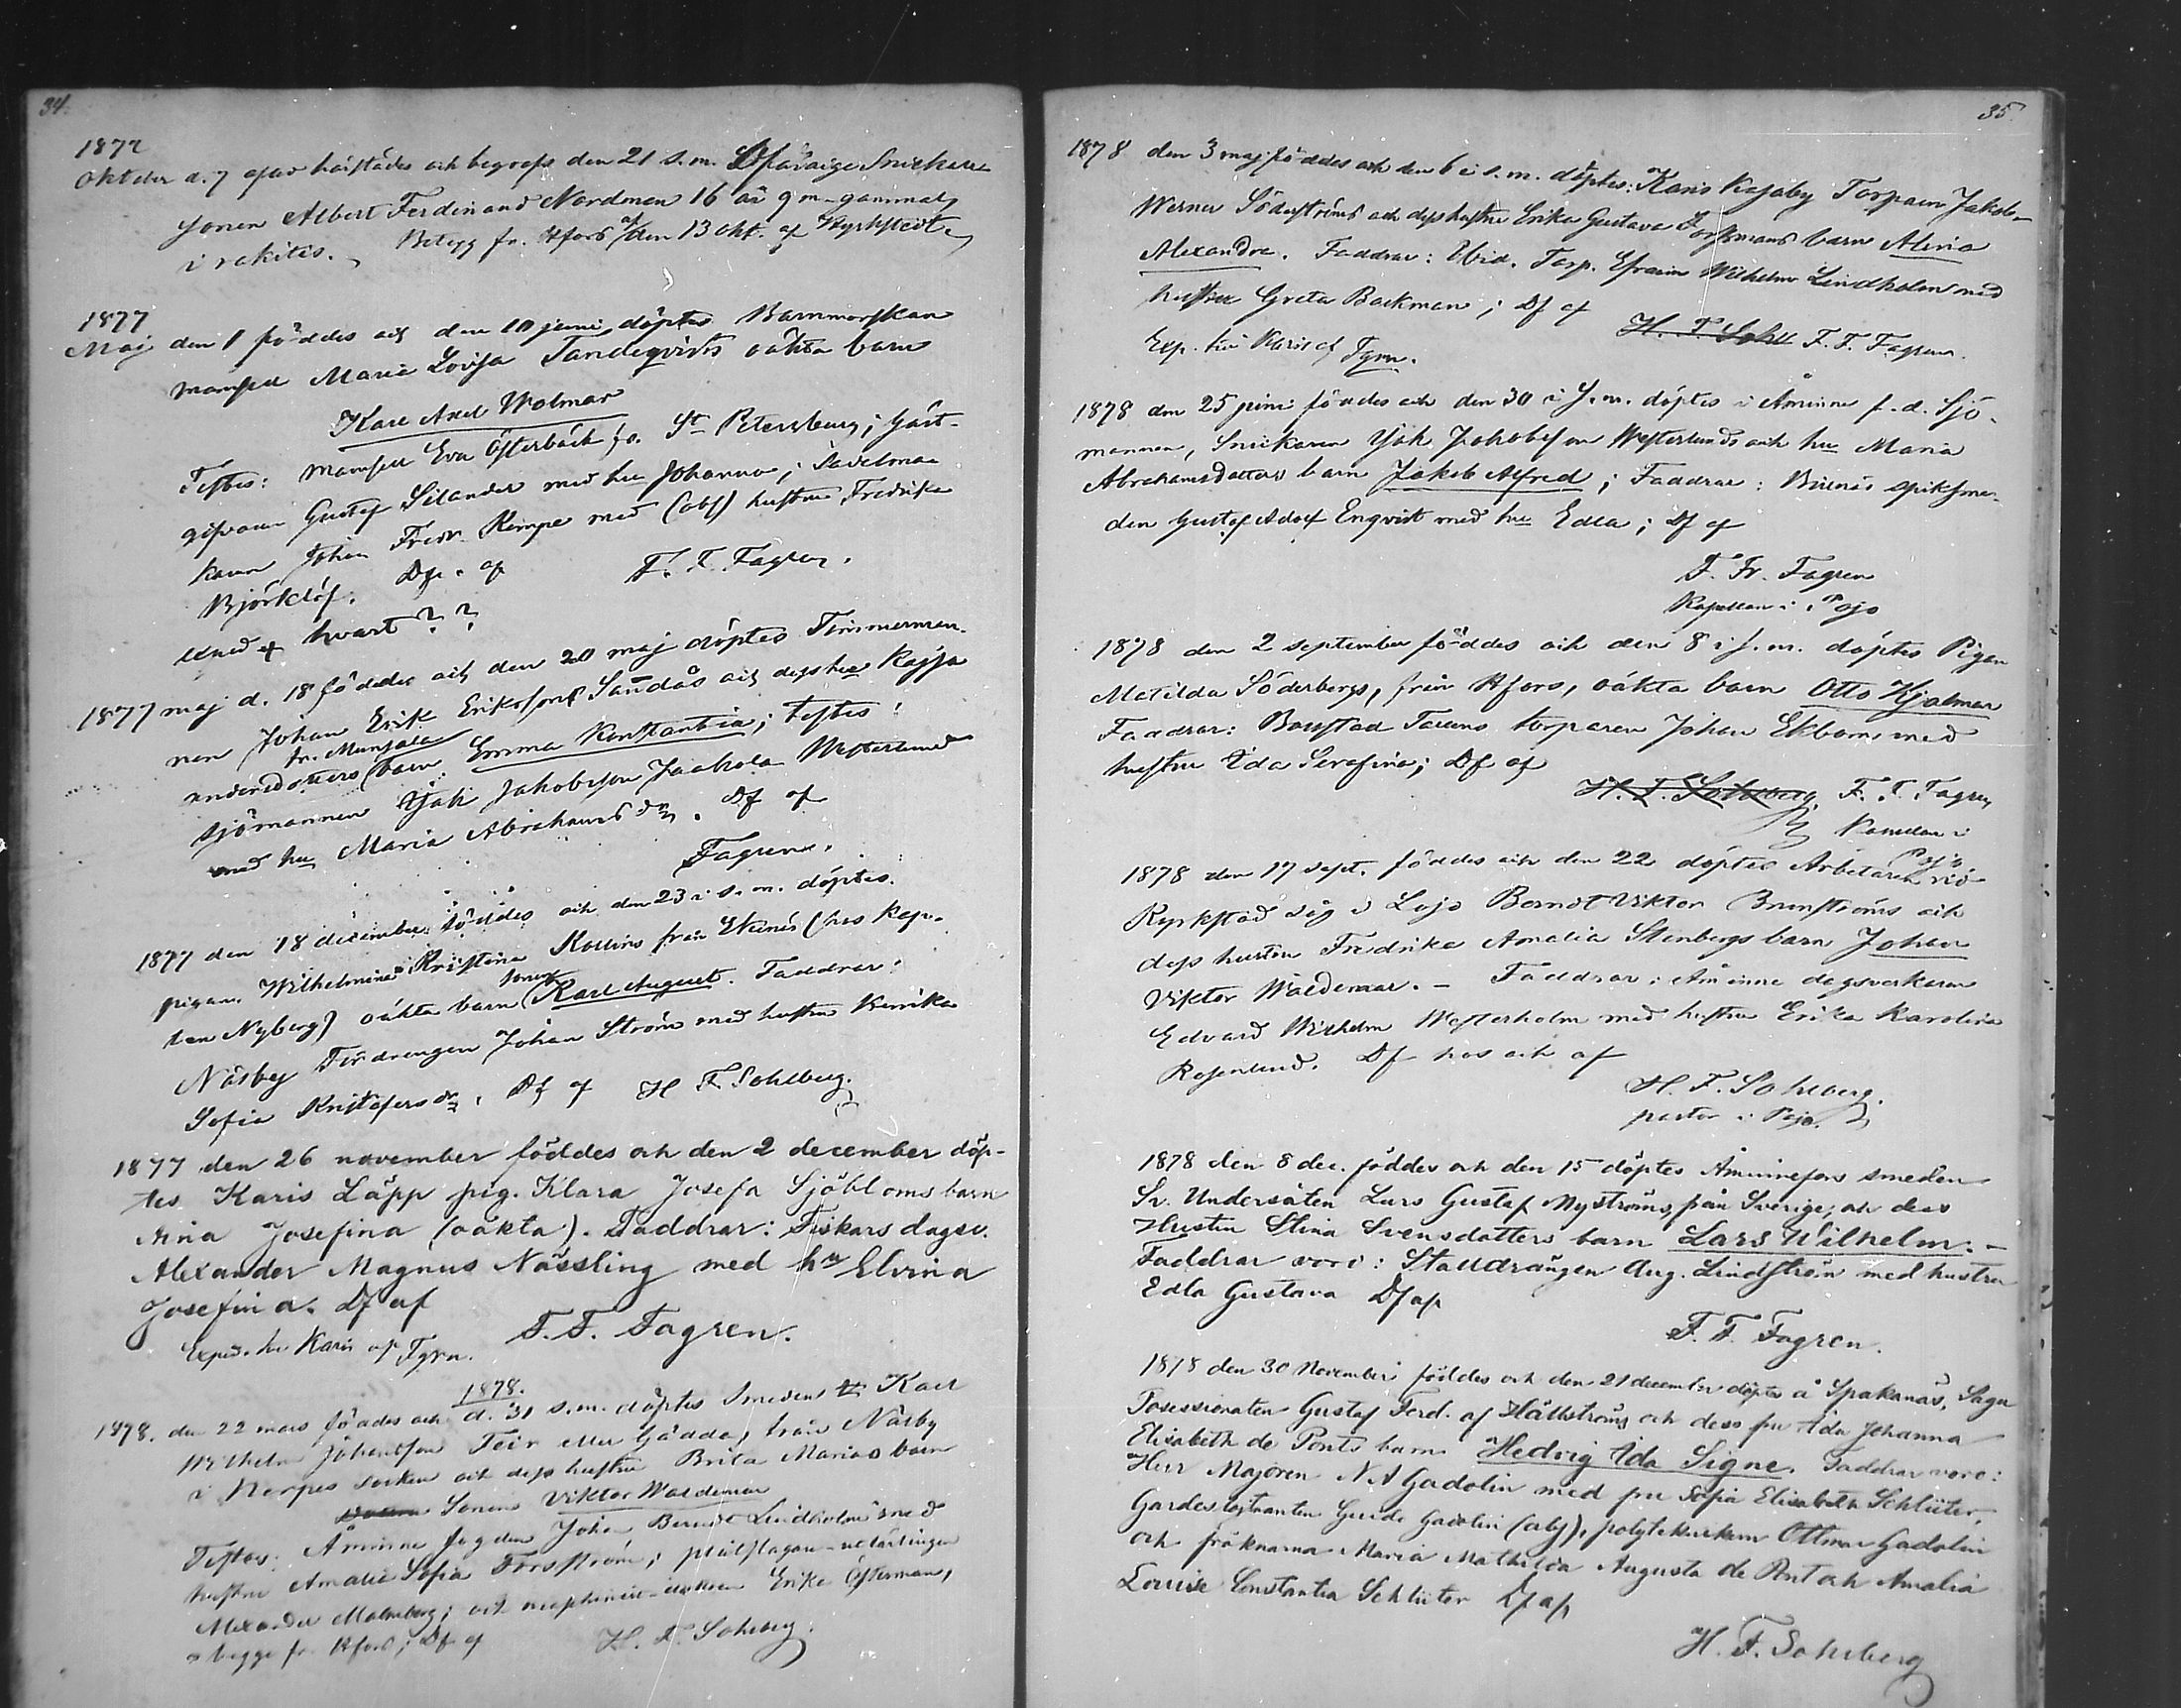 34.
1877
oktober d. 7 afsov härstädes och begrofs den 21 s.m. Snickare
sonen Albert Ferdinand Nordman 16 år 9 m. gammal,
i rakitis. Betyg fr. Hfors af den 13 okt. af Kyrklstedt
1877
Maj den 1 föddes och den 10 juni döptes Barnmorskan
mamsell Maria Lovisa Tandeqvists oäkta barn
Karl Axel Wolmar
Testes: mamsell Eva Österback fr. St Petersburg; Gäst-
gifvaren Gustaf Silander med hu Johanna; Sadelma-
karen Johan Fredr. Kempe med (abs) hustru Fredrika
Björklöf. Df. af F. F. Fagren.
exned hvart??
1877 maj d. 18 föddes och den 20 maj döptes Timmerman-
nen Johan Erik Erikssons Sandås och dess hu Kajsa
fr. Munjala
andersdotters barn Emma Konstantia; testes:
sjömannen Isak Jakobsson Jaakola Westerlund
med hu Maria Abrahamsdr. Df af
Fagren.
1877 den 18 december föddes och den 23 i s.m. döptes
pigan Wilhelmina Kristina Kollins från Ekenäs (hos kap-
ten Nyberg) oäkta barn sonen Karl August. Faddrar:
Näsby Fördrengen Johan Ström med hustru Henrika
Sofia Kristofersdr. Df af H F. Sohlberg.
1877 den 26 november föddes och den 2 december döp-
tes Karis Läpp pig. Klara Josefa Sjöbloms barn
Aina Josefina (oäkta). Faddrar: Fiskars dagsv.
Alexander Magnus Nässling med hu Elvina
Josefina. Df af
Exped. till Karis af Fgrn. F. F. Fagren.
1878.
1878. den 22 mars föddes och d. 31 s.m. döptes Smeden Karl
Wilhelm Johansson Teir eller Gädda, från Närby
i Nerpes socken och dess hustru Brita Marias barn
Sonen Viktor Waldemar
Testes: Åminne Johan Berndt Lindholm med
hustru Amalia Sofia Forsström;
Alexander Malmberg; och Erika Österman,
begge fr. Hfors; Df af H. F. Sohlberg.
35
1878 den 3 maj föddes och den 6 i s.m. döptes: Karis Kajaby Torparn Jakob
Werner Söderströms och dess hustru Erika Gustava Forssmans barn Alina
Alexandra. Faddrar: Ibid. Torp. Efraim Wilhelm Lindholm med
hustru Greta Backman; Df af H. F. Sohl F. F. Fagren.
Exp. till Karis af Fgrn.
1878 den 25 juni föddes och den 30 i s.m. döptes i Åminne f.d. Sjö-
mannen, Snickaren Isak Jakobsson Westerlunds och hu Maria
Abrahamsdotters barn Jakob Alfred; Faddrar: Billnäs spiksme-
den Gustaf Adolf Engvist med hu Edla; Df af
F. Fr. Fagren
Kapellan i Pojo
1878 den 2 september föddes och den 8 i s.m. döptes Pigan
Matilda Söderbergs, från Hfors, oäkta barn Otto Hjalmar
Faddrar: Bonstad Torparen Johan Ekbom med
hustru Ida Serafina; Df af
H. F. Sohlberg. F. F. Fagren
Kapellan i
Pojo
1878 den 17 sept. föddes och den 22 döptes Arbetaren vid
Kyrkstad såg i Lojo Berndt Viktor Brunströms och
dess hustru Fredrika Amalia Stenbergs barn Johan
Viktor Waldemar. - Faddrar: Åminne dagsverkaren
Edvard Wilhelm Westerholm med hustru Erika Karolina
Rosenlund. Df hos och af
H. F. Sohlberg.
pastor i Pojo.
1878 den 8 dec. föddes och den 15 döptes Åminnefors smeden
Sv. Undersåten Lars Gustaf Nyströms, från Sverige, och dess
Hustru Stina Svensdotters barn Lars Wilhelm. -
Faddrar voro: Stalldrängen Aug. Lindström med hustru
Edla Gustava Df af
F. F. Fagren.
1878 den 30 November föddes och den 21 december döptes å Spakanäs, Sagu
Possessionaten Gustaf Ferd. af Hällströms och dess fru Ida Johanna
Elisabeth de Ponts barn Hedvig Ida Signe. Faddrar voro:
Herr Majoren N A Gadolin med fru Sofia Elisabeth Schlüter,
Gardeslöjtnanten Guido Gadolin (abs), polyteknikern Ottmar Gadolin
och fröknarna Maria Mathilda Augusta de Pont och Amalia
Louise Constantia Schlüter Df af
H. F. Sohlberg